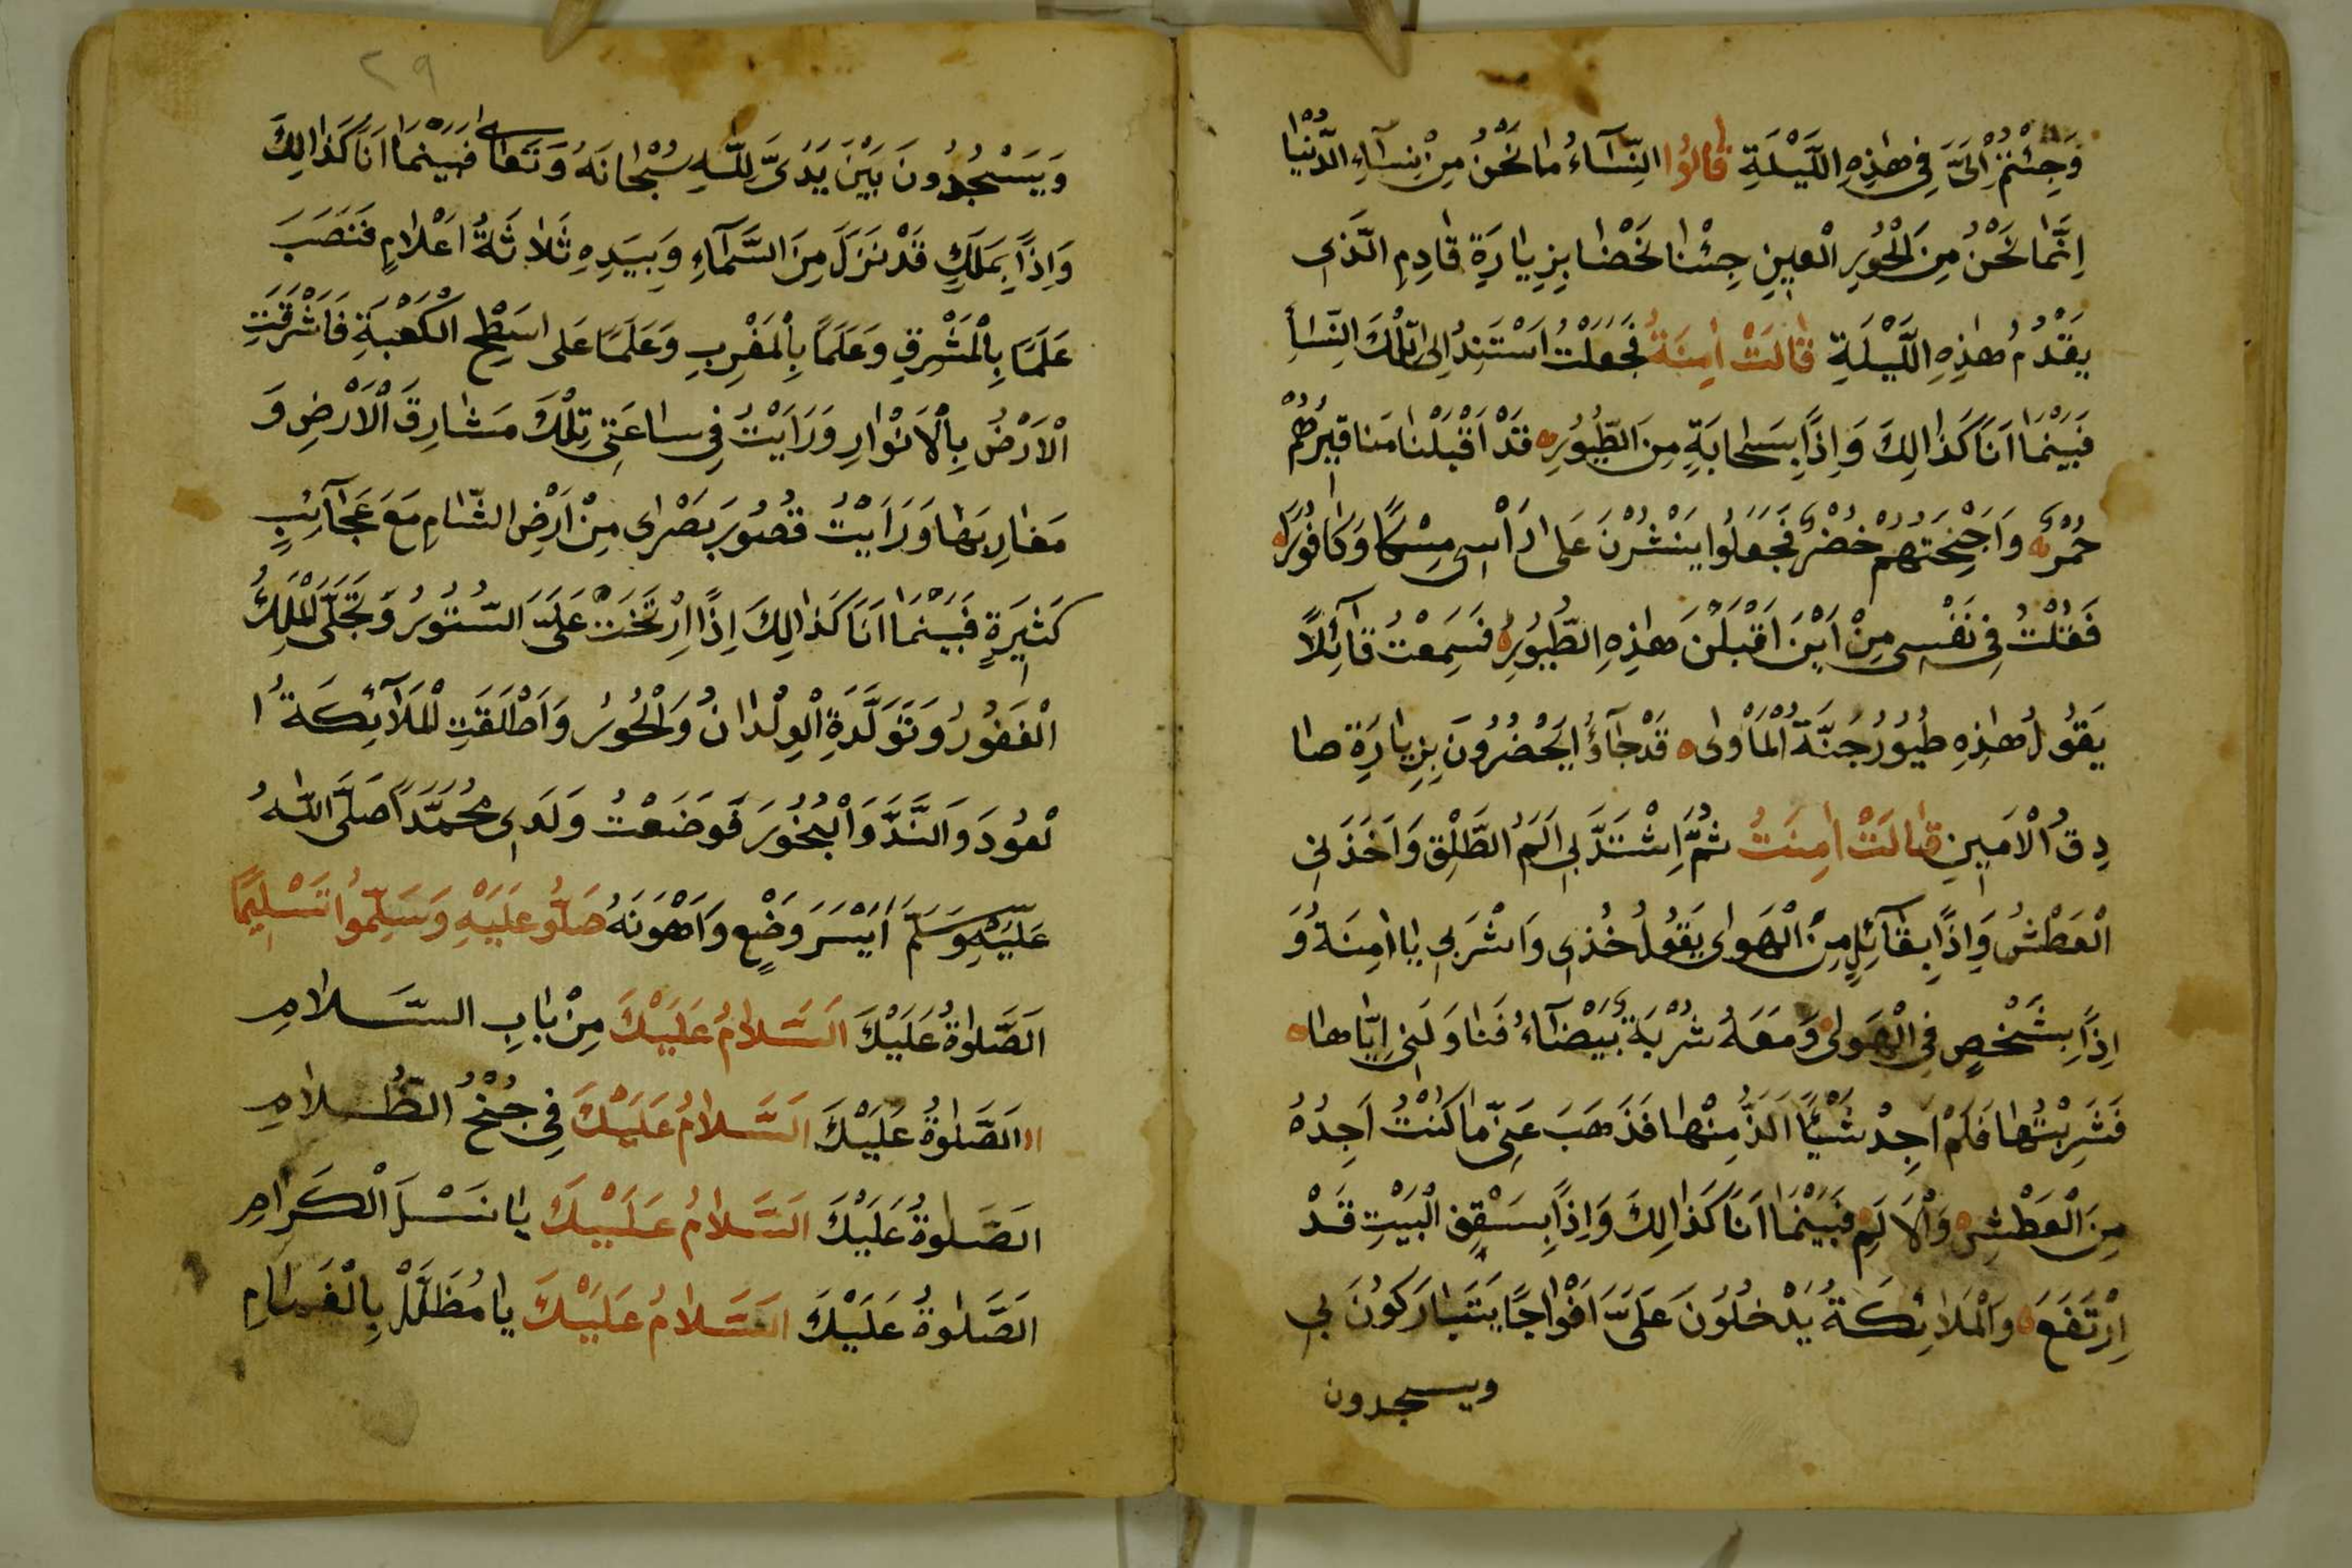 وَجِئْتُمْ اِلَىَّ فِى هٰذِهِ اللَّيْلَةِ قَالُوا النِّسَآءُ مَا نَحْنُ مِنْ نِسَآءِ الدُّنْيَا
اِنَّمَا نَحْنُ مِنَ الْحُوْرِ الْعِيْنِ جِئْنَا نَحْضُا بِزِيَارَةِ قَادِمِ الَّذِى
يَقْدُمُ هٰذِهِ اللَّيْلَةِ قَالَتْ اٰمِنَةُ فَجَعَلْتُ اَسْتَنِدُ اِلٰى تِلْكَ النِّسَأِ
فَبَيْنَمَا اَنَا كَذَالِكَ وَاِذًا بِسَحَابَةٍ مِنَ الطُّيُوْرِ قَدْ اَقْبَلْنَا مَنَاقِيْرُهُمْ
حُمْرٌ وَاَجْنِحَتُهُمْ خُضْرٌ فَجَعَلُوا يَنْشُرْنَ عَلٰى رَاْسِى مِسْكًا وَكَافُوْرًا
فَقُلْتُ فِى نَفْسِى مِنْ اَيْنَ اَقْبَلْنَ هٰذِهِ الطُّيُوْرِ فَسَمِعْتُ قَآئِلًا
يَقُوْلُ هٰذِهِ طُيُوْرُ جَنَّةُ الْمَاْوٰى قَدْ جَآؤُا يَحْضُرُوْنَ بِزِيَارَةِ صَا
دِقُ الْاَمِيْنِ قَالَتْ اٰمِنَتُ ثُمَّ اِشْتَدَّ بِى اَلَمُ الطَّلْقِ وَاَخَذَنِى
الْعَطْشُ وَاِذًا بِقَآئِلٍ مِنْ الْهَوٰى يَقُوْلُ خُذِى وَاشْرَبِى يَا اٰمِنَةُ وَ
اِذًا بِشَخْصٍ فِى الْهَوٰى وَمَعَهُ شُرْبَةٌ بَيْضَآءُ فَنَاوَلَنِى اِيَّاهَا
فَشَرِبْتُهَا فَلَمْ اَجِدْ شَيْئًا اَلَذُّ مِنْهَا فَذَهَبَ عَنِّى مَا كُنْتُ اَجِدُهُ
مِنَ الْعَطْشِ وَالْاَلَمِ فَبَيْنَمَا اَنَا كَذَالِكَ وَاِذًا بِسَقْفِ الْبَيْتِ قَدْ
اِرْتَفَعَ وَالْمَلَائِكَةُ يَدْخُلُوْنَ عَلَىَّ اَفْوَاجًا يَتَبَارَكُوْنَ بِى
ويسجدون
٢٩
وَيَسْجُدُوْنَ بَيْنَ يَدَىَّ لِلّٰهِ سُبْحَانَهُ وَتَعَالٰى فَبَيْنَمَا اَنَا كَذَالِكَ
وَاِذًا بِمَلَكٍ قَدْ نَزَلَ مِنَ السَّمَآءِ وَبِيَدِهِ ثَلَاثَةُ اَعْلَامٍ فَنَصَبَ
عَلَمًا بِالْمَشْرِقِ وَعَلَمًا بِالْمَغْرِبِ وَعَلَمًا عَلٰى اسَطْحِ الْكَعْبَةِ فَاَشْرَقَتِ
الْاَرْضُ بِالْاَنْوَارِ وَرَاَيْتُ فِى سَاعَتِى تِلْكَ مَشَارِقَ الْاَرْضِ وَ
مَغَارِبَهَا وَرَاَيْتُ قُصُوْرَ بَصْرٰى مِنْ اَرْضِ الشَّامِ مَعَ عَجَآئِبٍ
كَثِيْرَةٍ فَبَيْنَمَا اَنَا كَذَالِكَ اِذًا اِرْتَخَتْ عَلَىَّ السُّتُوْرُ وَتَجَلَّى الْمَلِكُ
الْغَفُوْرُ وَتَوَلَّدَةِ الْوِلْدَانُ وَالْحُوْرُ وَاَطْلَقَتِ الْمَلَآئِكَةُ ا
لْعُوْدَ وَالنَّدَّ وَالْبُخُوْرَ فَوَضَعْتُ وَلَدِى مُحَمَّدًا صَلَّى اللّٰهُ
عَلَيْهِ وَسَلَّمَ اَيْسَرَ وَضْعٍ وَاَهْوَنَهُ صَلُّوُ عَلَيْهِ وَسَلِّمُوا تَسْلِيْمًا
اَلصَّلٰوةُ عَلَيْكَ اَلسَّلَامُ عَلَيْكَ مِنْ بَابِ السَّلَامِ
اَلصَّلٰوةُ عَلَيْكَ اَلسَّلَامُ عَلَيْكَ فِى جُنْحُ الظُّلَامِ
اَلصَّلٰوةُ عَلَيْكَ اَلسَّلَامُ عَلَيْكَ يَا نَسْلَ الْكَرَامِ
اَلصَّلٰوةُ عَلَيْكَ اَلسَّلَامُ عَلَيْكَ يَا مُظَلَّلْ بِالْغَمَامِ